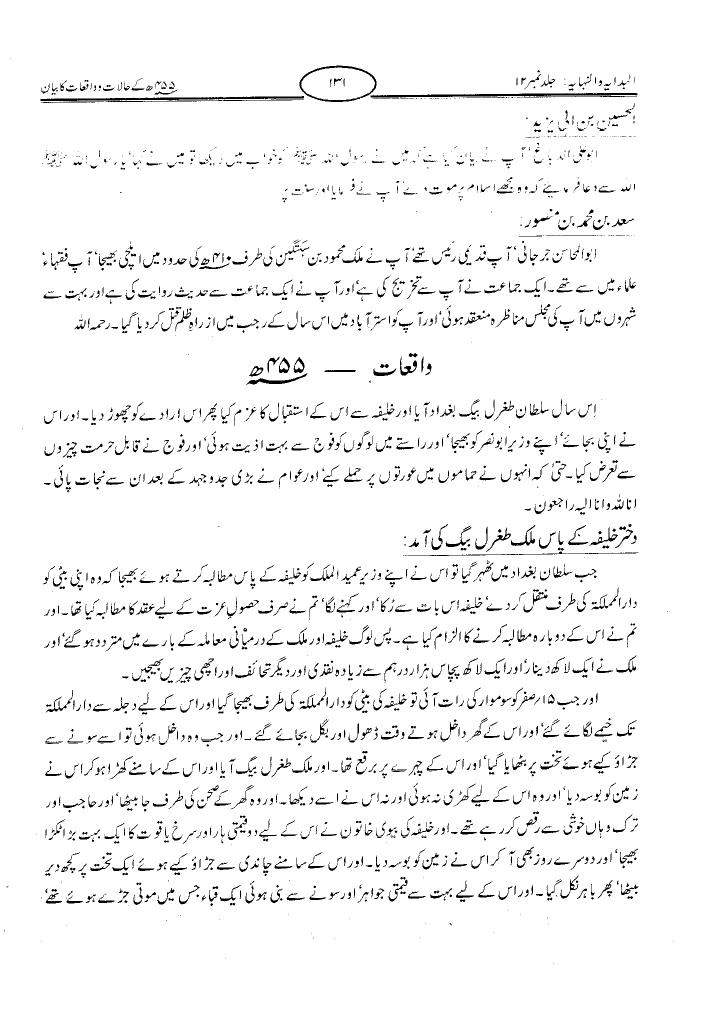 البدایہ والنہایہ: جلد نمبر ۱۲
۱۳۱
۴۵۵ھ کے حالات و واقعات کا بیان
الحسین بن ابی یزید:
ابوعلی الدباغ‘ آپ نے بیان کیا ہے کہ میں نے رسول اللہ ﷺ کو خواب میں دیکھا تو میں نے کہا‘ یا رسول اللہ ﷺ
اللہ سے دعا فرمایئے کہ وہ مجھے اسلام پر موت دے‘ آپ نے فرمایا اور سنت پر
سعد بن محمد بن منصور:
ابوالمحاسن جرجانی‘ آپ قدیمی رئیس تھے‘ آپ نے ملک محمود بن سبکتگین کی طرف ۴۱۰ھ کی حدود میں ایلچی بھیجا‘ آپ فقہاء
علماء میں سے تھے۔ ایک جماعت نے آپ سے تخریج کی ہے‘ اور آپ نے ایک جماعت سے حدیث روایت کی ہے اور بہت سے
شہروں میں آپ کی مجلس مناظرہ منعقد ہوئی‘ اور آپ کو استرآباد میں اس سال کے رجب میں از راہ ظلم قتل کر دیا گیا۔ رحمہ اللہ
واقعات — ۴۵۵ھ
اس سال سلطان طغرل بیگ بغداد آیا اور خلیفہ سے اس کے استقبال کا عزم کیا پھر اس ارادے کو چھوڑ دیا۔ اور اس
نے اپنی بجائے‘ اپنے وزیر ابونصر کو بھیجا‘ اور راستے میں لوگوں کو فوج سے بہت اذیت ہوئی‘ اور فوج نے قابل حرمت چیزوں
سے تعرض کیا۔ حتیٰ کہ انہوں نے حماموں میں عورتوں پر حملے کیے‘ اور عوام نے بڑی جدوجہد کے بعد ان سے نجات پائی۔
انا للہ وانا الیہ راجعون۔
دختر خلیفہ کے پاس ملک طغرل بیگ کی آمد:
جب سلطان بغداد میں ٹھہر گیا تو اس نے اپنے وزیر عمید الملک کو خلیفہ کے پاس مطالبہ کرتے ہوئے بھیجا کہ وہ اپنی بیٹی کو
دارالمملکۃ کی طرف منتقل کر دے‘ خلیفہ اس بات سے رُکا‘ اور کہنے لگا‘ تم نے صرف حصول عزت کے لیے عقد کا مطالبہ کیا تھا۔ اور
تم نے اس کے دوبارہ مطالبہ کرنے کا الزام کیا ہے۔ پس لوگ خلیفہ اور ملک کے درمیانی معاملہ کے بارے میں متردد ہو گئے‘ اور
ملک نے ایک لاکھ دینار‘ اور ایک لاکھ پچاس ہزار درہم سے زیادہ نقدی اور دیگر تحائف اور اچھی چیزیں بھیجیں۔
اور جب ۱۵/صفر کو سوموار کی رات آئی تو خلیفہ کی بیٹی کو دارالمملکۃ کی طرف بھیجا گیا اور اس کے لیے دجلہ سے دارالمملکۃ
تک خیمے لگائے گئے‘ اور اس کے گھر داخل ہوتے وقت ڈھول اور بگل بجائے گئے۔ اور جب وہ داخل ہوئی تو اسے سونے سے
جڑاؤ کیے ہوئے تخت پر بٹھایا گیا‘ اور اس کے چہرے پر برقع تھا۔ اور ملک طغرل بیگ آیا اور اس کے سامنے کھڑا ہو کر اس نے
زمین کو بوسہ دیا‘ اور وہ اس کے لیے کھڑی نہ ہوئی اور نہ اس نے اسے دیکھا۔ اور وہ گھر کے صحن کی طرف جا بیٹھا‘ اور حاجب اور
ترک وہاں خوشی سے رقص کر رہے تھے۔ اور خلیفہ کی بیوی خاتون نے اس کے لیے دو قیمتی ہار اور سرخ یاقوت کا ایک بہت بڑا ٹکڑا
بھیجا‘ اور دوسرے روز بھی آ کر اس نے زمین کو بوسہ دیا۔ اور اس کے سامنے چاندی سے جڑاؤ کیے ہوئے ایک تخت پر کچھ دیر
بیٹھا‘ پھر باہر نکل گیا۔ اور اس کے لیے بہت سے قیمتی جواہر‘ اور سونے سے بنی ہوئی ایک قباء جس میں موتی جڑے ہوئے تھے‘